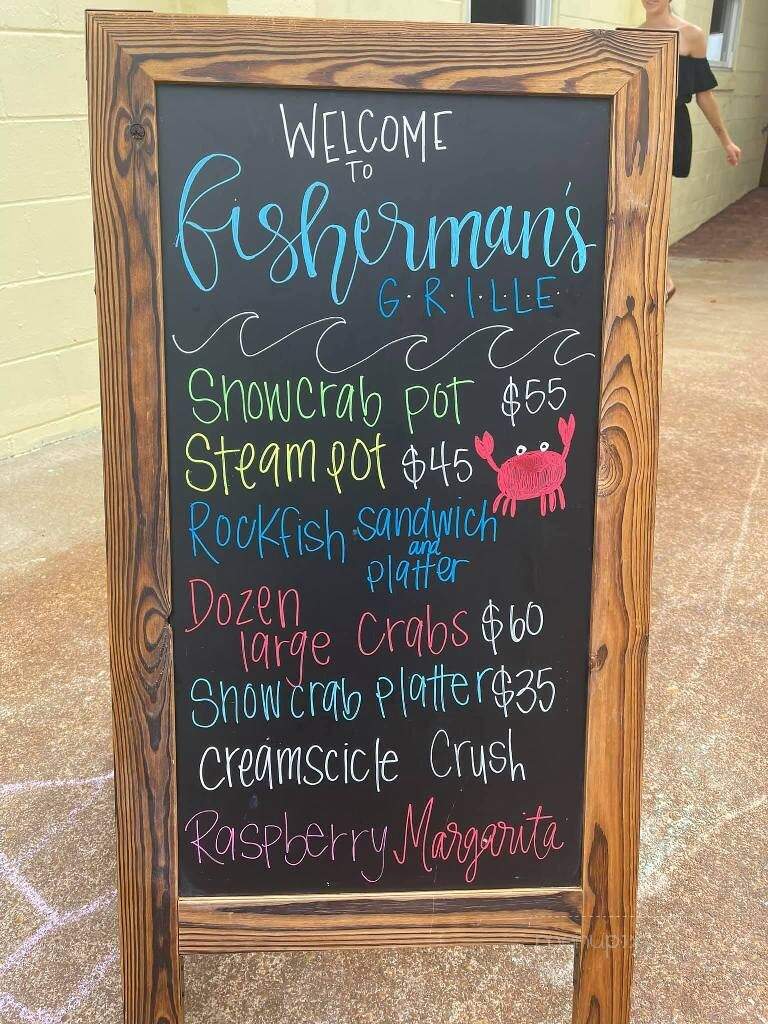 WELCOME
TO
fisherman's
G·R·I·L·L·E
Snowcrab pot $55
Steam pot $45
Rockfish sandwich
and
platter
Dozen
large crabs $60
Snowcrab platter $35
Creamscicle Crush
Raspberry Margarita